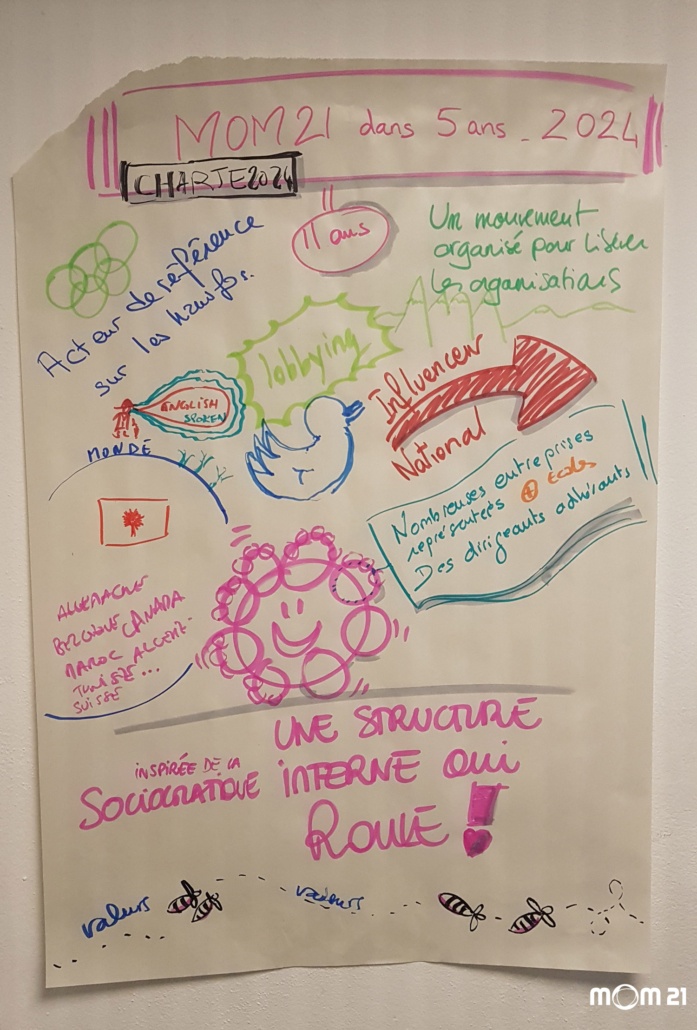 MOM21 dans 5 ans _ 2024
CHARTE2024
11 ans
Acteur de référence
sur les
Un mouvement
organisé pour libérer
les organisations
lobbying
ENGLISH
SPOKEN
MONDE
Influenceur
National
Nombreuses entreprises
représentées + Ecoles
Des dirigeants adhérants
ALLEMAGNE
BELGIQUE CANADA
MAROC ALGERIE
TUNISIE...
SUISSE
UNE STRUCTURE
INSPIRÉE DE LA
SOCIOCRATIQUE INTERNE QUI
ROULE !
valeurs
valeurs
MOM 21